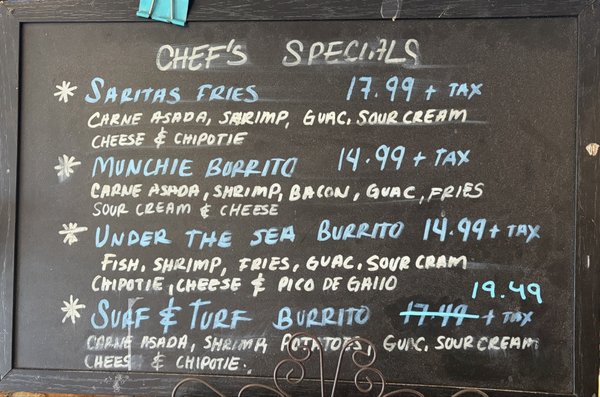 CHEF'S SPECIALS
* SARITAS FRIES 17.99 + TAX
CARNE ASADA, SHRIMP, GUAC, SOUR CREAM
CHEESE & CHIPOTIE
* MUNCHIE BURRITO 14.99 + TAX
CARNE ASADA, SHRIMP, BACON, GUAC, FRIES
SOUR CREAM & CHEESE
* UNDER THE SEA BURRITO 14.99 + TAX
FISH, SHRIMP, FRIES, GUAC, SOUR CRAM
CHIPOTIE, CHEESE & PICO DE GALLO
19.49
* SURF & TURF BURRITO 17.49 + TAX
CARNE ASADA, SHRIMP, POTATOES, GUAC, SOUR CREAM
CHEES & CHIPOTIE.